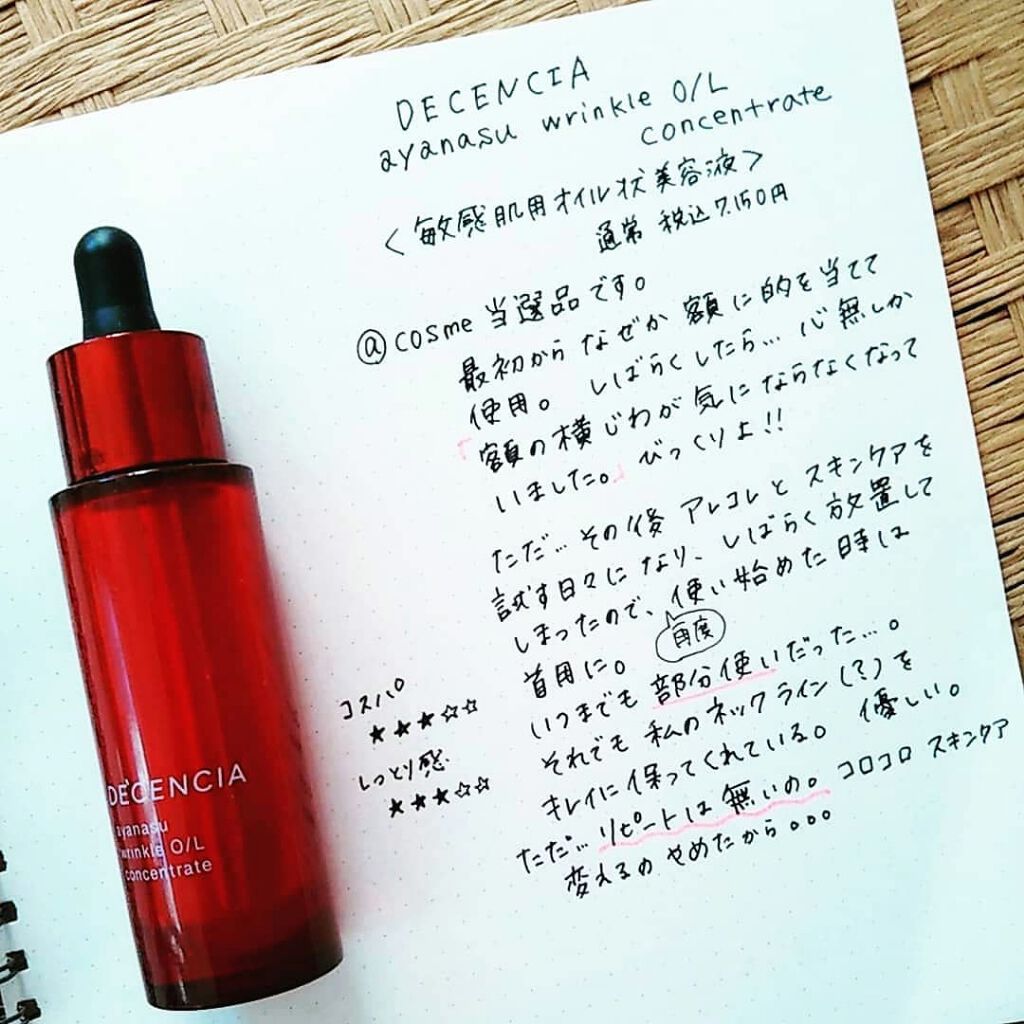 DECENCIA
ayanasu wrinkle O/L
concentrate
<敏感肌用オイル状美容液>
通常 税込7.150円
@cosme 当選品です。
最初からなぜか額に的を当てて
使用。しばらくしたら…心無しか
「額の横じわが気にならなくなって
いました。」びっくりよ!!
ただ…その後アレコレとスキンケアを
試す日々になり、しばらく放置して
しまったので、使い始めた時は
再度
首用に。
いつまでも部分使いだった…。
それでも私のネックライン(?)を
キレイに保ってくれている。優しい。
ただ…リピートは無いの。コロコロスキンケア
変えるのやめたから。。。
コスパ
★★★☆☆
しっとり感
★★★☆☆
DECENCIA
ayanasu
wrinkle O/L
concentrate